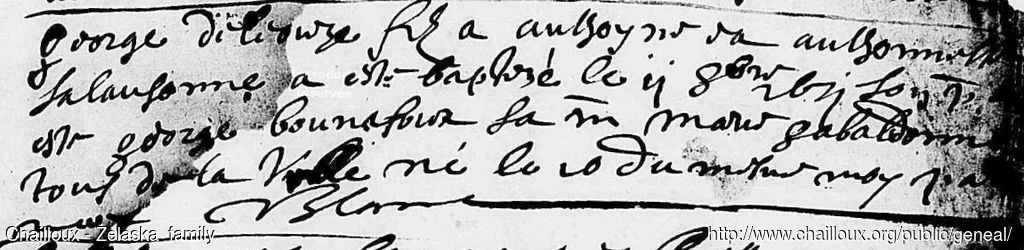 george delcouze filz a anthoyne et a anthonnette
salausonne a este baptizé le ij 9bre 1651 son pa
est george bonnefour sa m marie gabaldonne
tous de la Ville né le 10 du mesme moy pa
Chailloux - Zelaska family
http://www.chailloux.org/public/geneal/